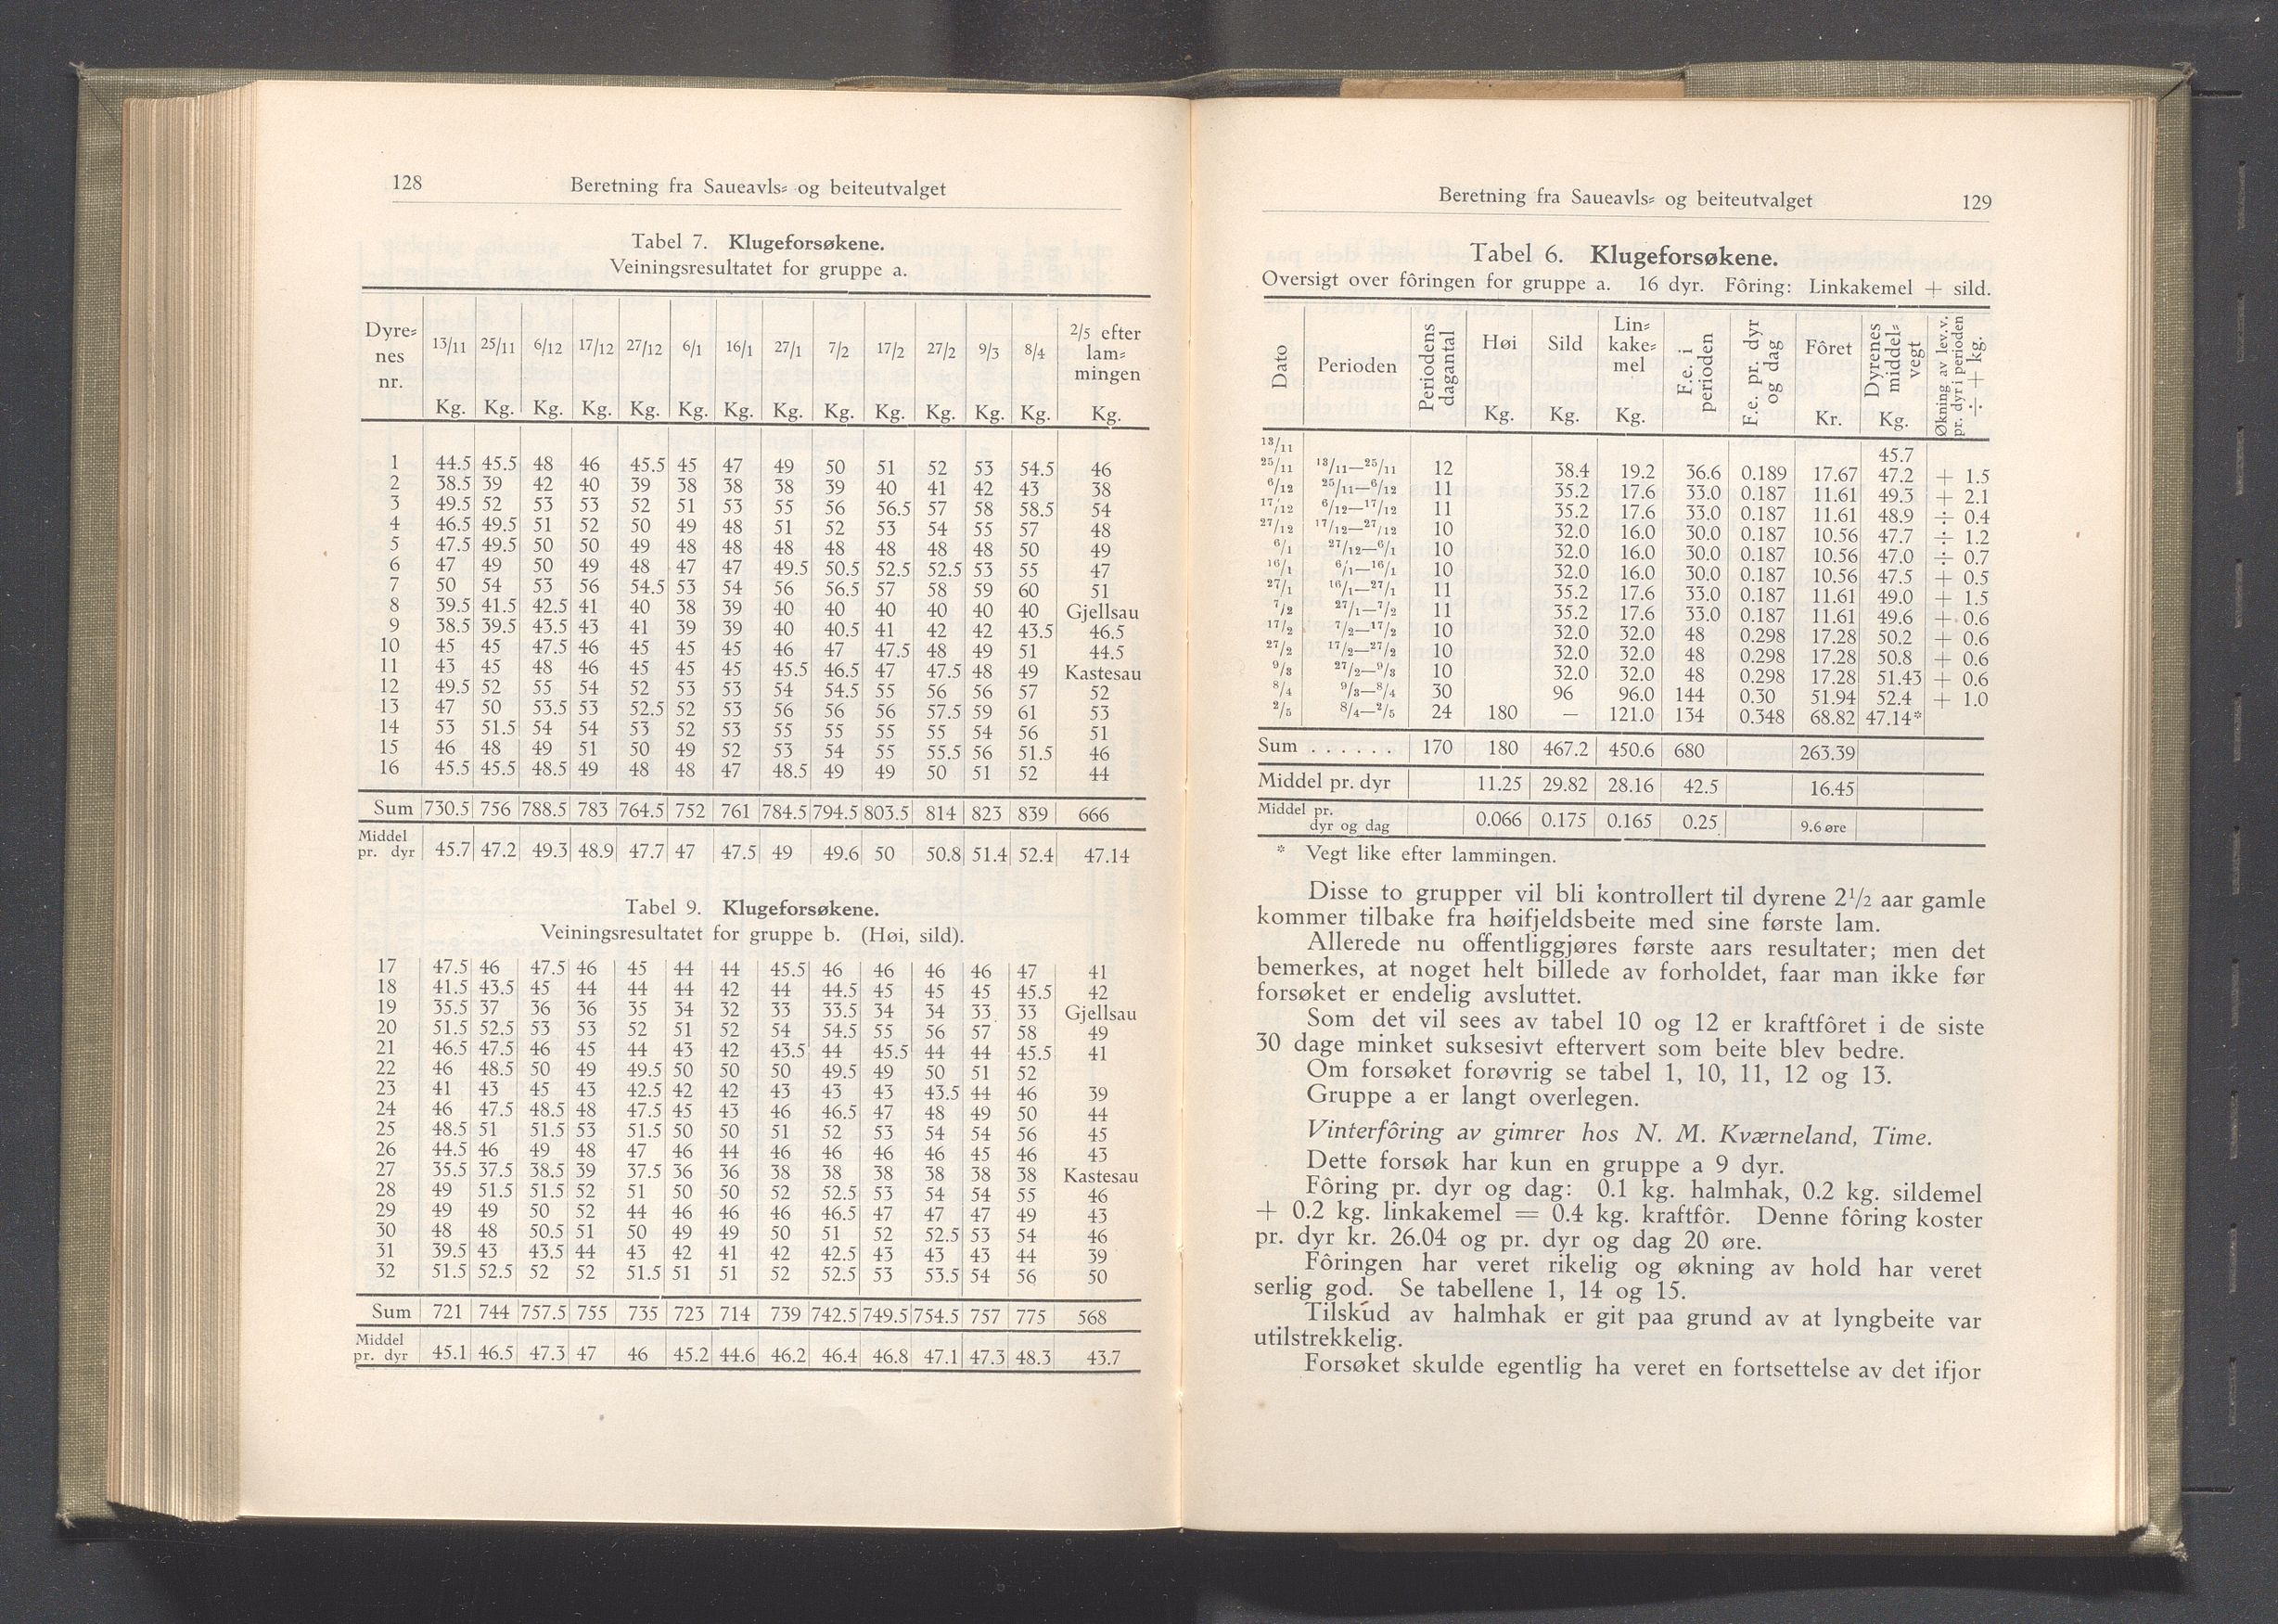 128 Beretning fra Saueavls= og beiteutvalget
Tabel 7. Klugeforsøkene.
Veiningsresultatet for gruppe a.
Dyre=nes nr. 13/11 25/11 6/12 17/12 27/12 6/1 16/1 27/1 7/2 17/2 27/2 9/3 8/4 2/5 efter lam=mingen
Kg. Kg. Kg. Kg. Kg. Kg. Kg. Kg. Kg. Kg. Kg. Kg. Kg. Kg.
1 44.5 45.5 48 46 45.5 45 47 49 50 51 52 53 54.5 46
2 38.5 39 42 40 39 38 38 38 39 40 41 42 43 38
3 49.5 52 53 53 52 51 53 55 56 56.5 57 58 58.5 54
4 46.5 49.5 51 52 50 49 48 51 52 53 54 55 57 48
5 47.5 49.5 50 50 49 48 48 48 48 48 48 48 50 49
6 47 49 50 49 48 47 47 49.5 50.5 52.5 52.5 53 55 47
7 50 54 53 56 54.5 53 54 56 56.5 57 58 59 60 51
8 39.5 41.5 42.5 41 40 38 39 40 40 40 40 40 40 Gjellsau
9 38.5 39.5 43.5 43 41 39 39 40 40.5 41 42 42 43.5 46.5
10 45 45 47.5 46 45 45 45 46 47 47.5 48 49 51 44.5
11 43 45 48 46 45 45 45 45.5 46.5 47 47.5 48 49 Kastesau
12 49.5 52 55 54 52 53 53 54 54.5 55 56 56 57 52
13 47 50 53.5 53 52.5 52 53 56 56 56 57.5 59 61 53
14 53 51.5 54 54 53 52 53 55 55 55 55 54 56 51
15 46 48 49 51 50 49 52 53 54 55 55.5 56 51.5 46
16 45.5 45.5 48.5 49 48 48 47 48.5 49 49 50 51 52 44
Sum 730.5 756 788.5 783 764.5 752 761 784.5 794.5 803.5 814 823 839 666
Middel pr. dyr 45.7 47.2 49.3 48.9 47.7 47 47.5 49 49.6 50 50.8 51.4 52.4 47.14
Tabel 9. Klugeforsøkene.
Veiningsresultatet for gruppe b. (Høi, sild).
17 47.5 46 47.5 46 45 44 44 45.5 46 46 46 46 47 41
18 41.5 43.5 45 44 44 44 42 44 44.5 45 45 45 45.5 42
19 35.5 37 36 36 35 34 32 33 33.5 34 34 33 33 Gjellsau
20 51.5 52.5 53 53 52 51 52 54 54.5 55 56 57 58 49
21 46.5 47.5 46 45 44 43 42 43.5 44 45.5 44 44 45.5 41
22 46 48.5 50 49 49.5 50 50 50 49.5 49 50 51 52
23 41 43 45 43 42.5 42 42 43 43 43 43.5 44 46 39
24 46 47.5 48.5 48 47.5 45 43 46 46.5 47 48 49 50 44
25 48.5 51 51.5 53 51.5 50 50 51 52 53 54 54 56 45
26 44.5 46 49 48 47 46 44 46 46 46 46 45 46 43
27 35.5 37.5 38.5 39 37.5 36 36 38 38 38 38 38 38 Kastesau
28 49 51.5 51.5 52 51 50 50 52 52.5 53 54 54 55 46
29 49 49 50 52 44 46 46 46 46.5 47 47 47 49 43
30 48 48 50.5 51 50 49 49 50 51 52 52.5 53 54 46
31 39.5 43 43.5 44 43 42 41 42 42.5 43 43 43 44 39
32 51.5 52.5 52 52 51.5 51 51 52 52.5 53 53.5 54 56 50
Sum 721 744 757.5 755 735 723 714 739 742.5 749.5 754.5 757 775 568
Middel pr. dyr 45.1 46.5 47.3 47 46 45.2 44.6 46.2 46.4 46.8 47.1 47.3 48.3 43.7
Beretning fra Saueavls= og beiteutvalget 129
Tabel 6. Klugeforsøkene.
Oversigt over fôringen for gruppe a. 16 dyr. Fôring: Linkakemel + sild.
Dato Perioden Periodens dagantal Høi Sild Lin=kake=mel F.e. i perioden F.e. pr. dyr og dag Fôret Dyrenes middel=vegt Økning av lev.v. pr. dyr i perioden ÷ + kg.
Kg. Kg. Kg. Kr. Kg.
13/11 45.7
25/11 13/11—25/11 12 38.4 19.2 36.6 0.189 17.67 47.2 + 1.5
6/12 25/11—6/12 11 35.2 17.6 33.0 0.187 11.61 49.3 + 2.1
17/12 6/12—17/12 11 35.2 17.6 33.0 0.187 11.61 48.9 ÷ 0.4
27/12 17/12—27/12 10 32.0 16.0 30.0 0.187 10.56 47.7 ÷ 1.2
6/1 27/12—6/1 10 32.0 16.0 30.0 0.187 10.56 47.0 ÷ 0.7
16/1 6/1—16/1 10 32.0 16.0 30.0 0.187 10.56 47.5 + 0.5
27/1 16/1—27/1 11 35.2 17.6 33.0 0.187 11.61 49.0 + 1.5
7/2 27/1—7/2 11 35.2 17.6 33.0 0.187 11.61 49.6 + 0.6
17/2 7/2—17/2 10 32.0 32.0 48 0.298 17.28 50.2 + 0.6
27/2 17/2—27/2 10 32.0 32.0 48 0.298 17.28 50.8 + 0.6
9/3 27/2—9/3 10 32.0 32.0 48 0.298 17.28 51.43 + 0.6
8/4 9/3—8/4 30 96 96.0 144 0.30 51.94 52.4 + 1.0
2/5 8/4—2/5 24 180 — 121.0 134 0.348 68.82 47.14*
Sum . . . . . . 170 180 467.2 450.6 680 263.39
Middel pr. dyr 11.25 29.82 28.16 42.5 16.45
Middel pr. dyr og dag 0.066 0.175 0.165 0.25 9.6 øre
* Vegt like efter lammingen.
Disse to grupper vil bli kontrollert til dyrene 2½ aar gamle
kommer tilbake fra høifjeldsbeite med sine første lam.
Allerede nu offentliggjøres første aars resultater; men det
bemerkes, at noget helt billede av forholdet, faar man ikke før
forsøket er endelig avsluttet.
Som det vil sees av tabel 10 og 12 er kraftfôret i de siste
30 dage minket suksesivt eftervert som beite blev bedre.
Om forsøket forøvrig se tabel 1, 10, 11, 12 og 13.
Gruppe a er langt overlegen.
Vinterfôring av gimrer hos N. M. Kværneland, Time.
Dette forsøk har kun en gruppe a 9 dyr.
Fôring pr. dyr og dag: 0.1 kg. halmhak, 0.2 kg. sildemel
+ 0.2 kg. linkakemel = 0.4 kg. kraftfôr. Denne fôring koster
pr. dyr kr. 26.04 og pr. dyr og dag 20 øre.
Fôringen har veret rikelig og økning av hold har veret
serlig god. Se tabellene 1, 14 og 15.
Tilskud av halmhak er git paa grund av at lyngbeite var
utilstrekkelig.
Forsøket skulde egentlig ha veret en fortsettelse av det ifjor